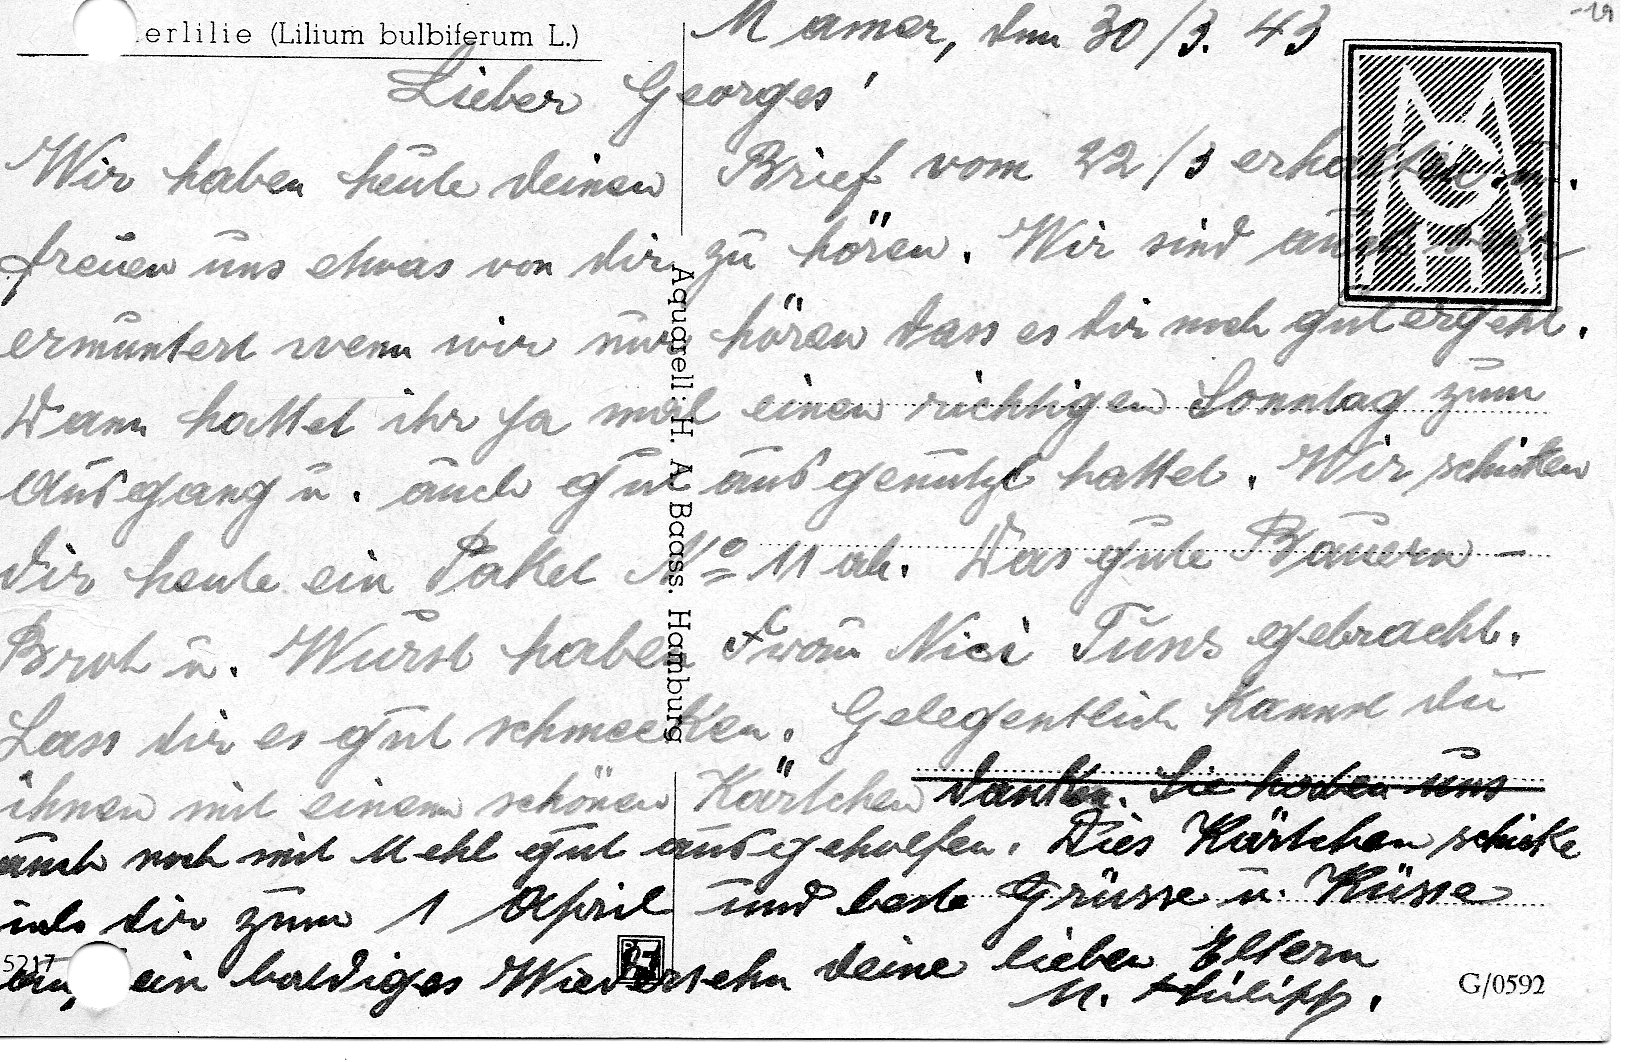 erlilie (Lilium bulbiferum L.)
Mamer, den 30/3. 43
Lieber Georges!
Wir haben heute deinen Brief vom 22/3 erhalten u.
freuen uns etwas von dir zu hören. Wir sind auch
ermuntert wenn wir nur hören dass es dir noch gut ergeht.
Dann hattet ihr ja mal einen richtigen Sonntag zum
Ausgang u. auch gut ausgenutzt hattet. Wir schicken
dir heute ein Paket No 11 ab. Das gute Bauern-
Brot u. Wurst haben Nici Tuns gebracht.
Lass dir es gut schmecken. Gelegentlich kannst du
ihnen mit einem schönen Kärtchen danken. Sie haben uns
auch noch mit Mehl gut ausgeholfen. Dies Kärtchen schicke
dir zum 1 April und beste Grüsse u. Küsse
ein baldiges Wiedersehn deine lieben Eltern
N. Philipp.
Aquarell: H. A. Baass. Hamburg
MCH
5217
G/0592